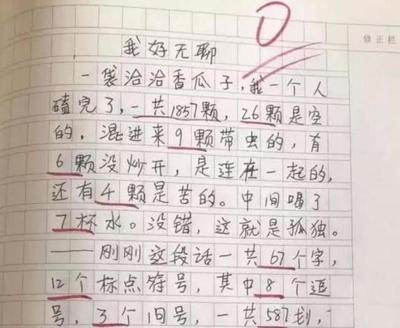 0
修正栏
我好无聊
一袋洽洽香瓜子,我一个人
磕完了,一共1857颗,26颗是空
的,混进来9颗带虫的,有
6颗没炒开,是连在一起的,
还有4颗是苦的。中间喝了
7杯水。没错,这就是孤独。
——刚刚这段话一共67个字,
12个标点符号,其中8个逗
号,3个句号,一共587划,